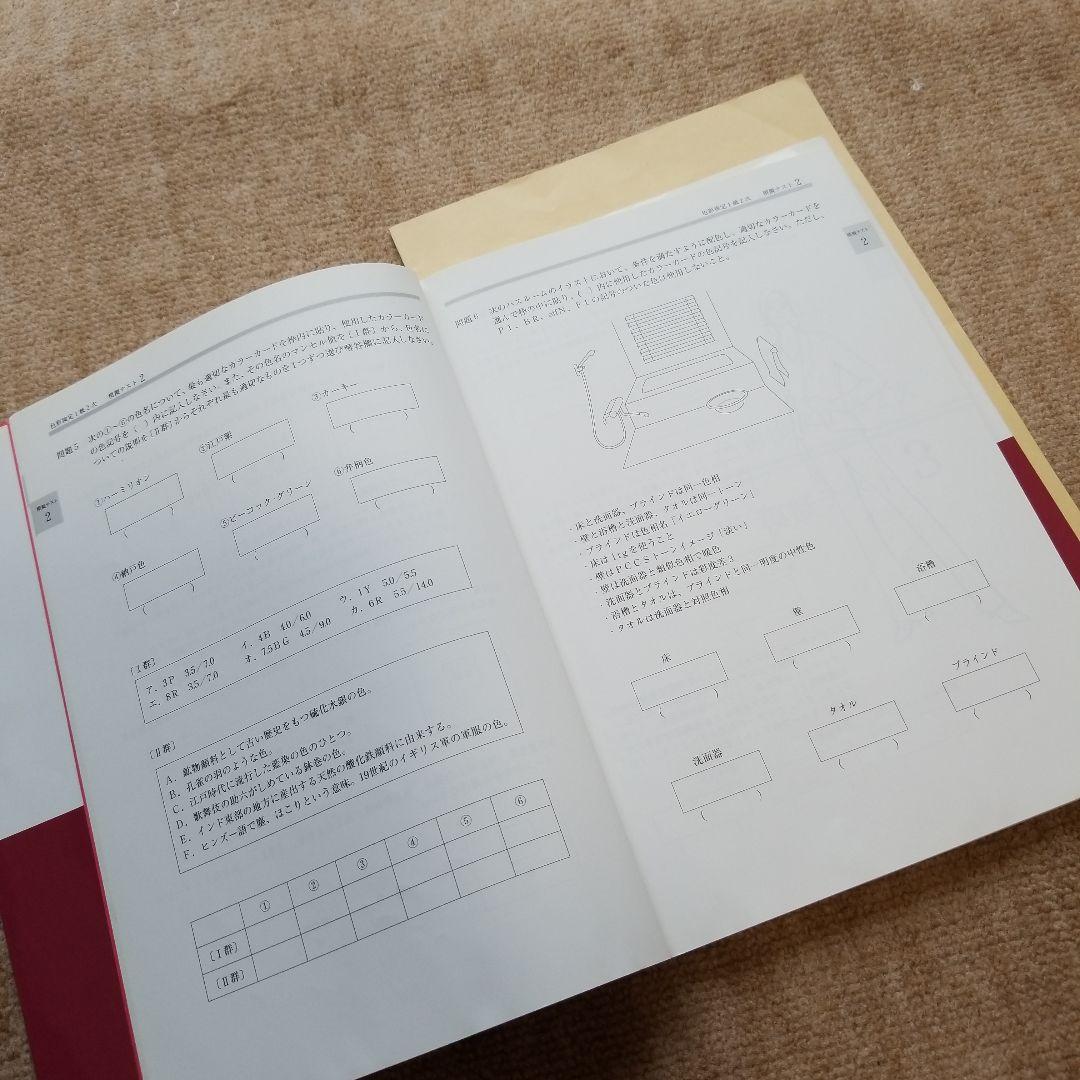 色彩検定1級2次 模擬テスト2
問題5 次の①~⑥の色名について、最も適切なカラーカードを枠内に貼り、使用したカラーカード
の色記号を( )内に記入しなさい。また、その色名のマンセル値を〔Ⅰ群〕から、色名に
ついての説明を〔Ⅱ群〕からそれぞれ最も適切なものを1つずつ選び解答欄に記入しなさい。
模擬テスト
2
①バーミリオン
②江戸紫
③カーキー
( )
( )
( )
④納戸色
⑤ピーコック・グリーン
⑥弁柄色
( )
( )
( )
〔Ⅰ群〕
ア. 3P 3.5/7.0 イ. 4B 4.0/6.0 ウ. 1Y 5.0/5.5
エ. 8R 3.5/7.0 オ. 7.5BG 4.5/9.0 カ. 6R 5.5/14.0
〔Ⅱ群〕
A. 鉱物顔料として古い歴史をもつ硫化水銀の色。
B. 孔雀の羽のような色。
C. 江戸時代に流行した藍染の色のひとつ。
D. 歌舞伎の助六がしめている鉢巻の色。
E. インド東部の地方に産出する天然の酸化鉄顔料に由来する。
F. ヒンズー語で塵、ほこりという意味。19世紀のイギリス軍の軍服の色。
① ② ③ ④ ⑤ ⑥
〔Ⅰ群〕
〔Ⅱ群〕
色彩検定1級2次 模擬テスト2
模擬テスト
2
問題6 次のバスルームのイラストにおいて、条件を満たすように配色し、適切なカラーカードを
選んで枠の中に貼り、( )内に使用したカラーカードの色記号を記入しなさい。ただし、
P I、B R、offN、F l の記号がついた色は使用しないこと。
・床と洗面器、ブラインドは同一色相
・壁と浴槽と洗面器、タオルは同一トーン
・ブラインドは色相名「イエローグリーン」
・床はltgを使うこと
・壁はPCCSトーンイメージ「淡い」
・壁は洗面器と類似色相で暖色
・洗面器とブラインドは彩度差3
・浴槽とタオルは、ブラインドと同一明度の中性色
・タオルは洗面器と対照色相
床
壁
浴槽
( )
( )
( )
洗面器
タオル
ブラインド
( )
( )
( )